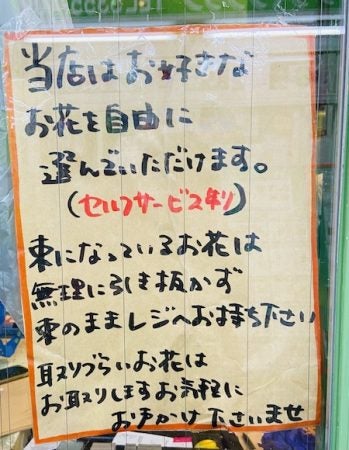 当店はお好きな
お花を自由に
選んでいただけます。
(セルフサービス有り)
束になっているお花は
無理に引き抜かず
束のままレジへお持ち下さい
取りづらいお花は
お取りしますお気軽に
お声かけ下さいませ